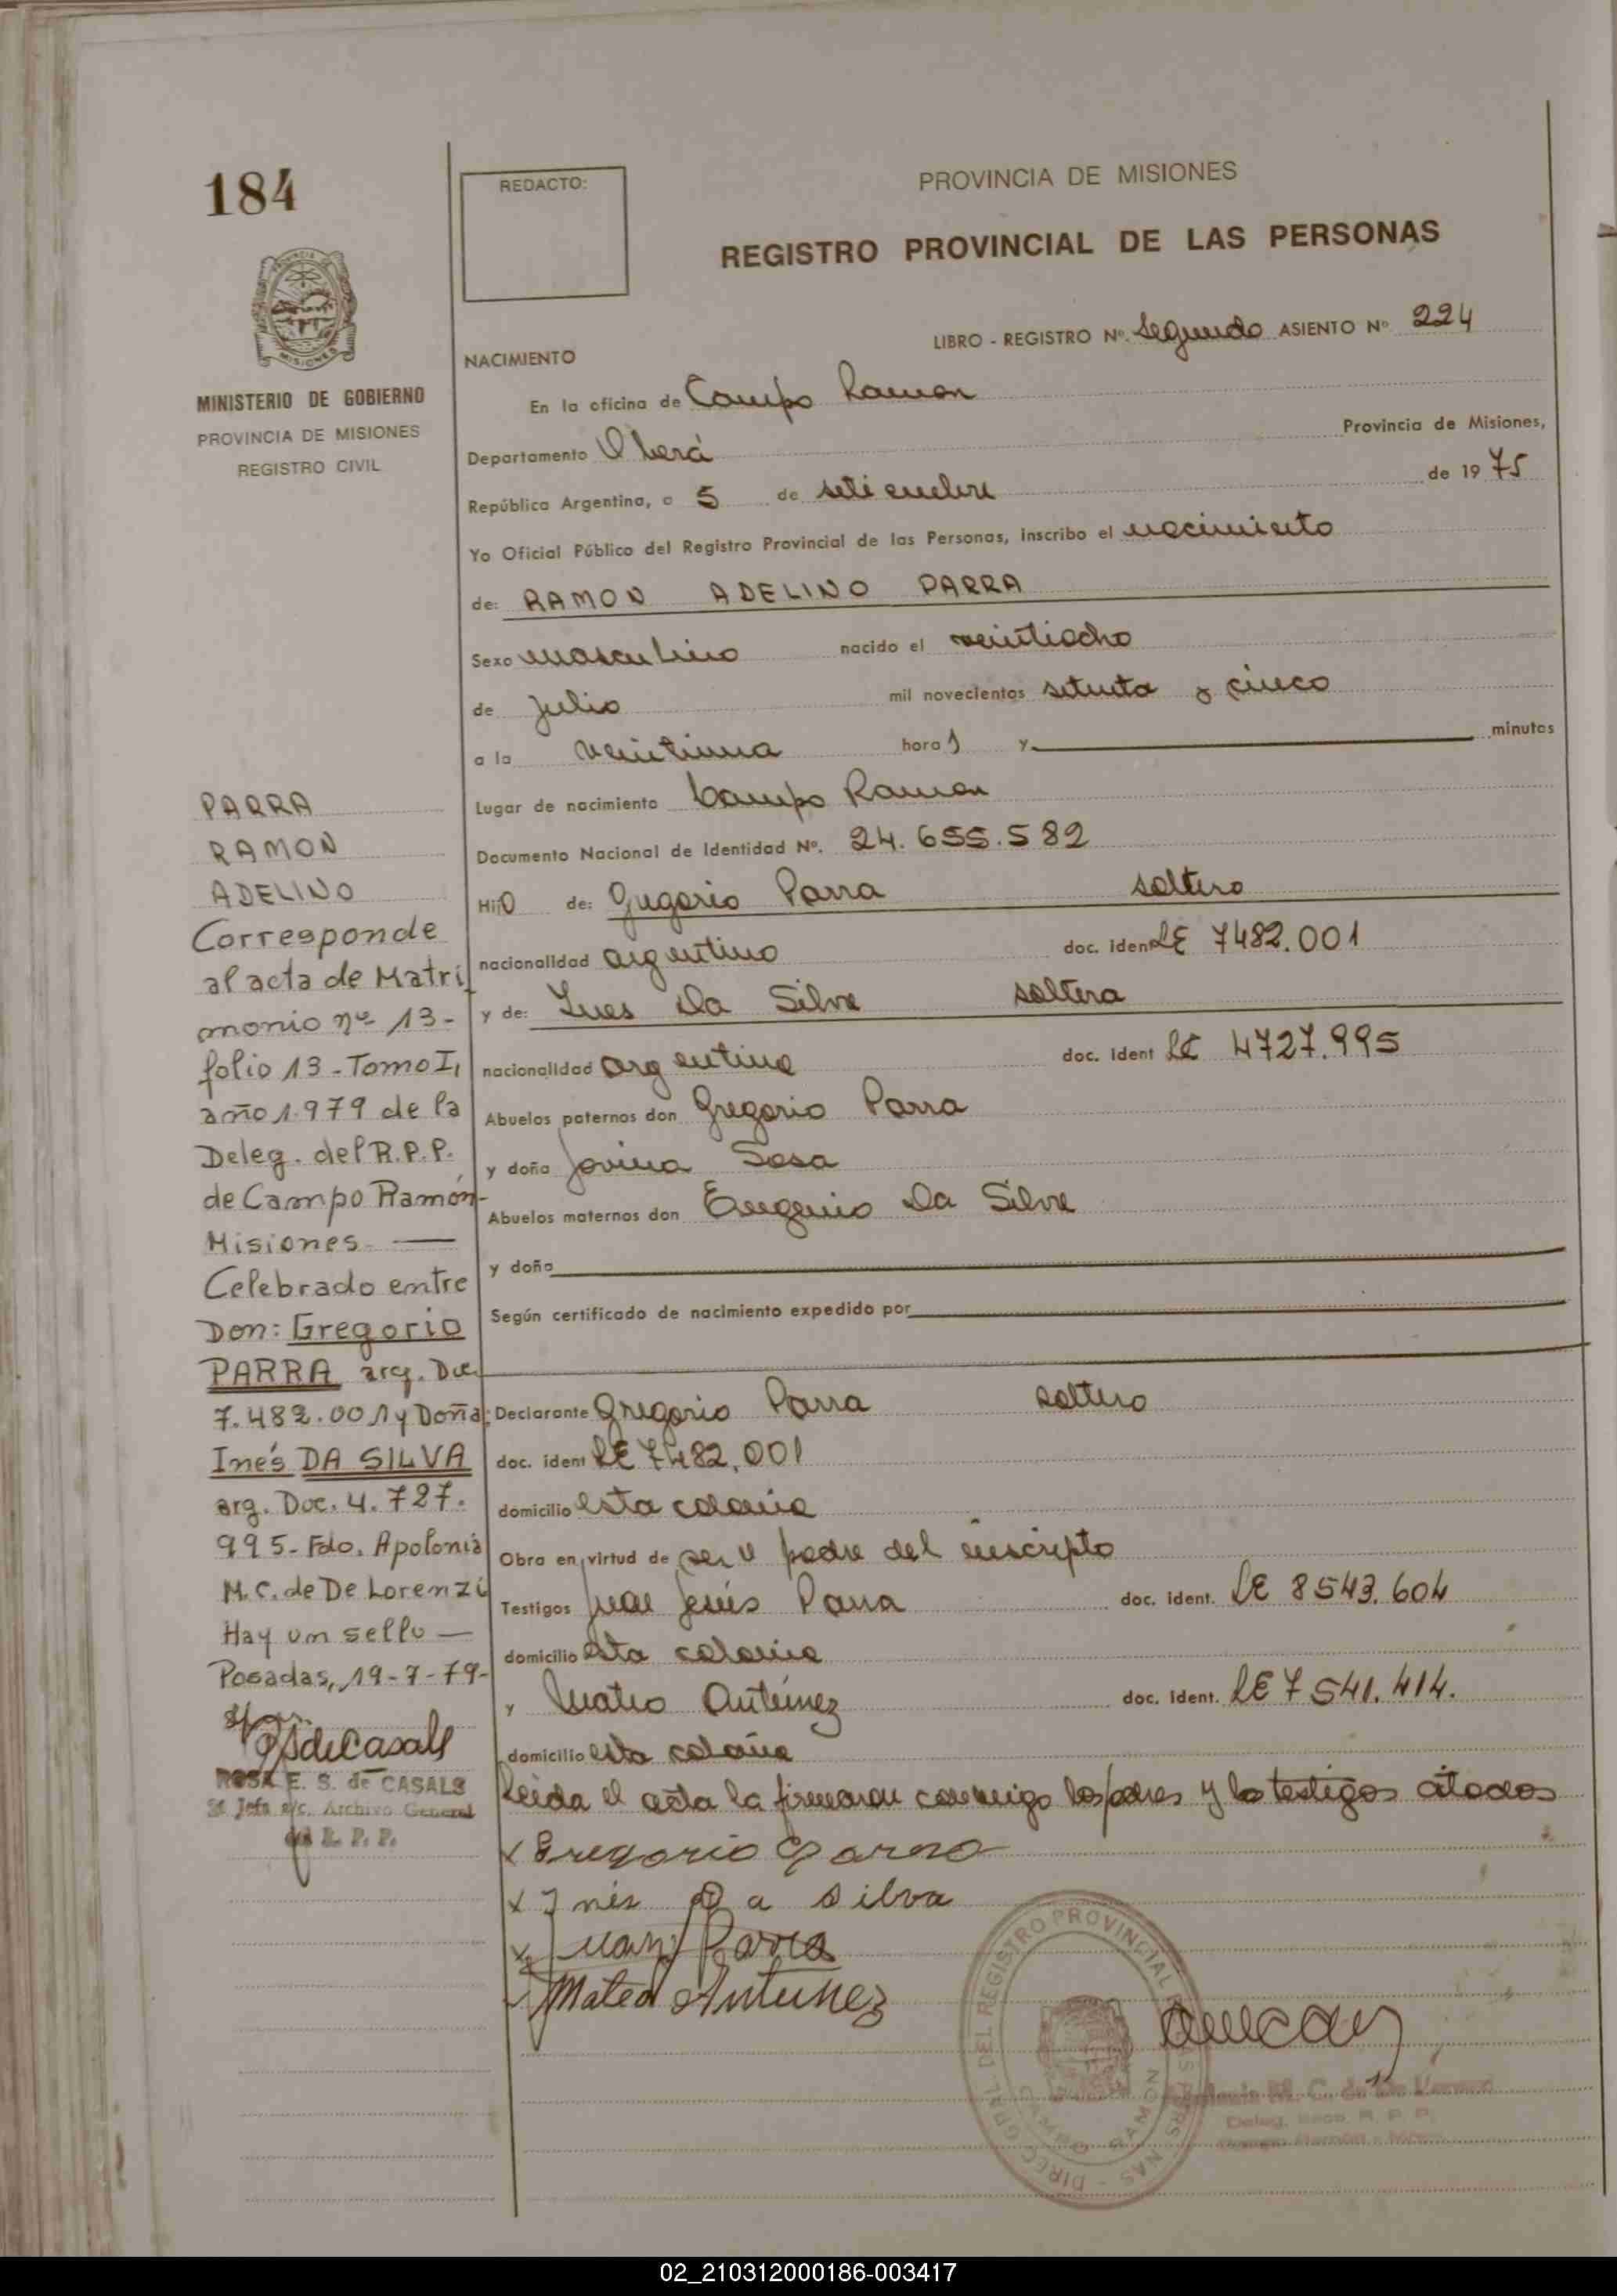 184
REDACTO:
PROVINCIA DE MISIONES
REGISTRO PROVINCIAL DE LAS PERSONAS
LIBRO - REGISTRO Nº. Segundo ASIENTO Nº 224
MISIONES
MINISTERIO DE GOBIERNO
PROVINCIA DE MISIONES
REGISTRO CIVIL
NACIMIENTO
En la oficina de Campo Ramon
Departamento Oberá Provincia de Misiones,
República Argentina, a 5 de setiembre de 1975
Yo Oficial Público del Registro Provincial de las Personas, inscribo el nacimiento
de: RAMON ADELINO PARRA
Sexo masculino nacido el veintiocho
de julio mil novecientos setenta y cinco
a la veintiuna hora s y minutos
Lugar de nacimiento Campo Ramon
Documento Nacional de Identidad Nº. 24.655.582
Hijo de: Gregorio Parra soltero
nacionalidad argentino doc. ident LE 7482.001
y de: Ines Da Silva soltera
nacionalidad argentina doc. ident LC 4727.995
Abuelos paternos don Gregorio Parra
y doña Jovina Sosa
Abuelos maternos don Eugenio Da Silva
y doña
Según certificado de nacimiento expedido por
Declarante Gregorio Parra soltero
doc. ident LE 7482.001
domicilio esta colonia
Obra en virtud de ser el padre del inscripto
Testigos Juan Jesús Parra doc. ident. LE 8543.604
domicilio esta colonia
y Mateo Antúnez doc. ident. LE 7541.414.
domicilio esta colonia
Leida el acta la firmaron conmigo los padres y los testigos citados
x Gregorio Parra
x Inés Da Silva
x Juan J Parra
Mateo Antunez
PARRA
RAMON
ADELINO
Corresponde
al acta de Matri
monio nº 13-
folio 13-Tomo I,
año 1.979 de la
Deleg. del R.P.P.
de Campo Ramón-
Misiones —
Celebrado entre
Don: Gregorio
PARRA arg. Doc
7.482.001 y Doña:
Inés DA SILVA
arg. Doc. 4.727.
995-Fdo. Apolonia
M.C. de De Lorenzi
Hay un sello —
Posadas, 19-7-79-
RSdeCasals
ROSA E. S. de CASALS
Jefe a/c. Archivo General
del R. P. P.
DIREC. GRAL. DEL REGISTRO PROVINCIAL DE LAS PERSONAS
CAMPO RAMON
M. C. de De
Deleg. R. P. P.
Campo Ramón
02_210312000186-003417